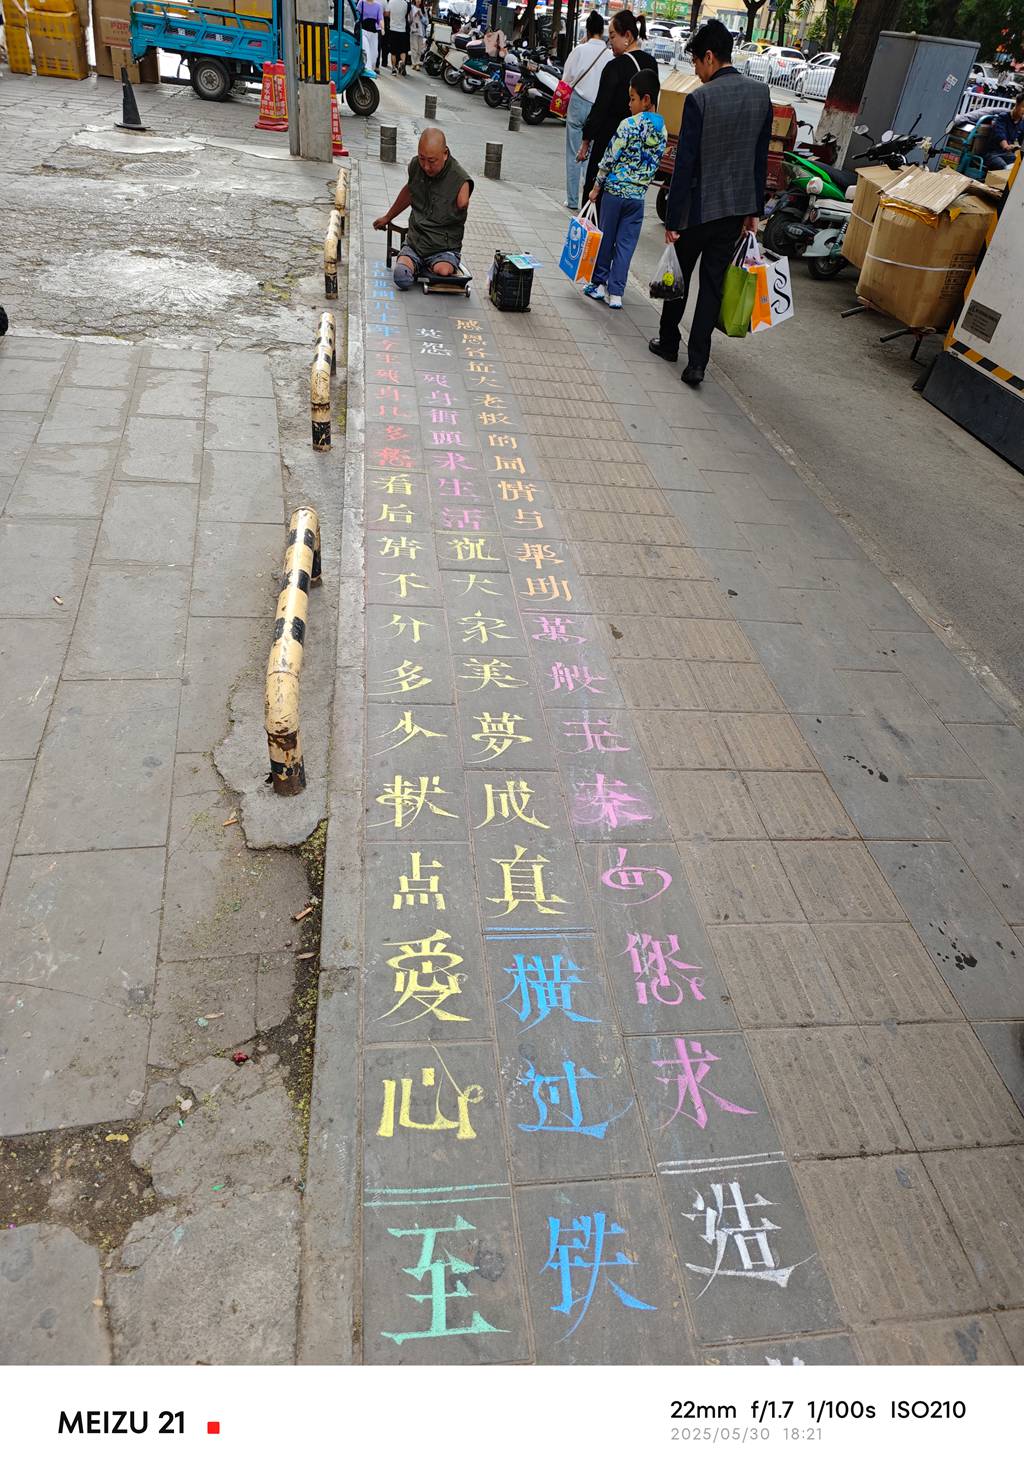 感恩各位大老板的同情与帮助萬般无奈向您求造
莫 残身街頭求生活祝大家美夢成真横过铁
年 生残身几多 看后请不分多少献点爱心至
MEIZU 21
22mm f/1.7 1/100s ISO210
2025/05/30 18:21